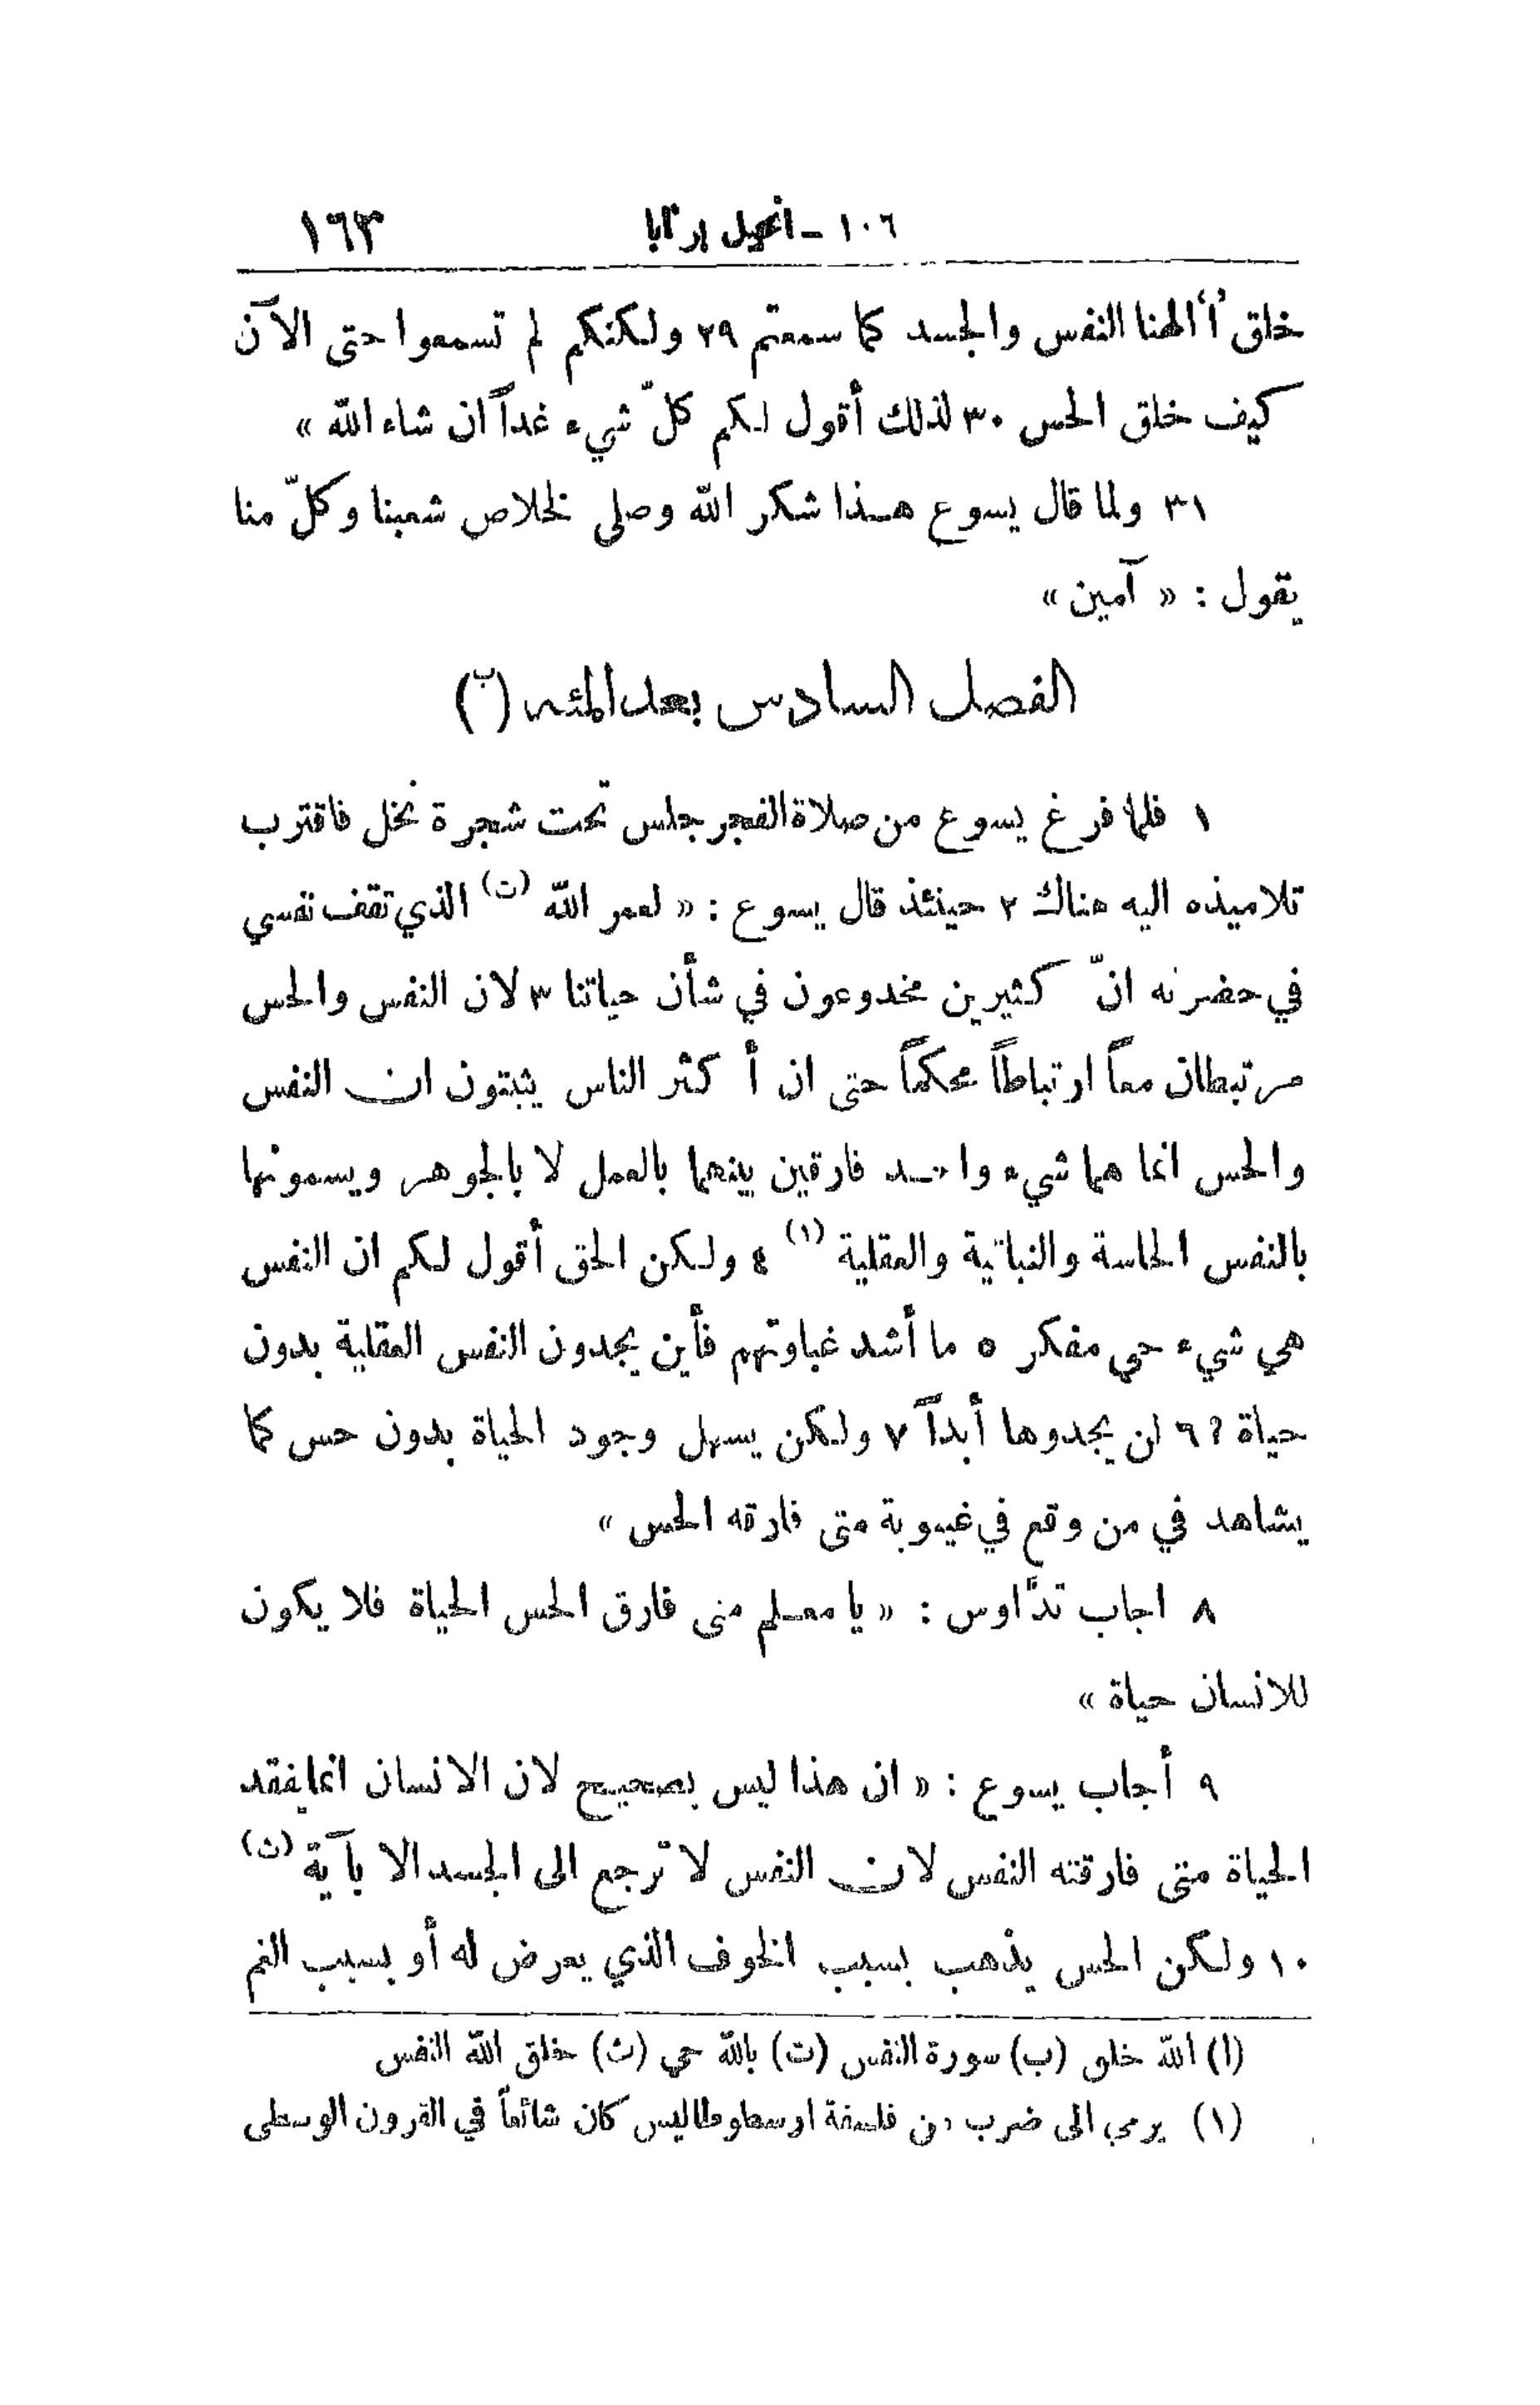 ١٠٦ ــ انجيل برنابا ١٦٣
خلق «أ» الهنا النفس والجسد كما سمعتم ٢٩ ولكنكم لم تسمعوا حتى الآن
كيف خلق الحس ٣٠ لذلك أقول لكم كلّ شيء غداً ان شاء الله »
٣١ ولما قال يسوع هـذا شكر الله وصلى لخلاص شعبنا وكلّ منا
يقول : « آمين »
الفصل السادس بعد المئه (ب)
١ فلما فرغ يسوع من صلاة الفجر جلس تحت شجرة نخل فاقترب
تلاميذه اليه هناك ٢ حينئذ قال يسوع : « لعمر الله (ت) الذي تقف نفسي
في حضرته انّ كثيرين مخدوعون في شأن حياتنا ٣ لان النفس والحس
مرتبطان معاً ارتباطاً محكماً حتى ان أكثر الناس يثبتون ان النفس
والحس انما هما شيء واحـد فارقين بينهما بالعمل لا بالجوهر ويسمونها
بالنفس الحاسة والنباتية والعقلية (١) ٤ ولكن الحق أقول لكم ان النفس
هي شيء حي مفكر ٥ ما أشد غباوتهم فأين يجدون النفس العقلية بدون
حياة ؟ ٦ لن يجدوها أبداً ٧ ولكن يسهل وجود الحياة بدون حس كما
يشاهد في من وقع في غيبوبة متى فارقه الحس »
٨ اجاب تدّاوس : « يا معـلم متى فارق الحس الحياة فلا يكون
للانسان حياة »
٩ أجاب يسوع : « ان هذا ليس بصحيح لان الانسان انما يفقد
الحياة متى فارقته النفس لان النفس لا ترجع الى الجسد الا بآية (ث)
١٠ ولكن الحس يذهب بسبب الخوف الذي يعرض له أو بسبب الغم
(ا) الله خلق (ب) سورة النفس (ت) بالله حي (ث) خلق الله النفس
(١) يرمي الى ضرب من فلسفة ارسطوطاليس كان شائعاً في القرون الوسطى